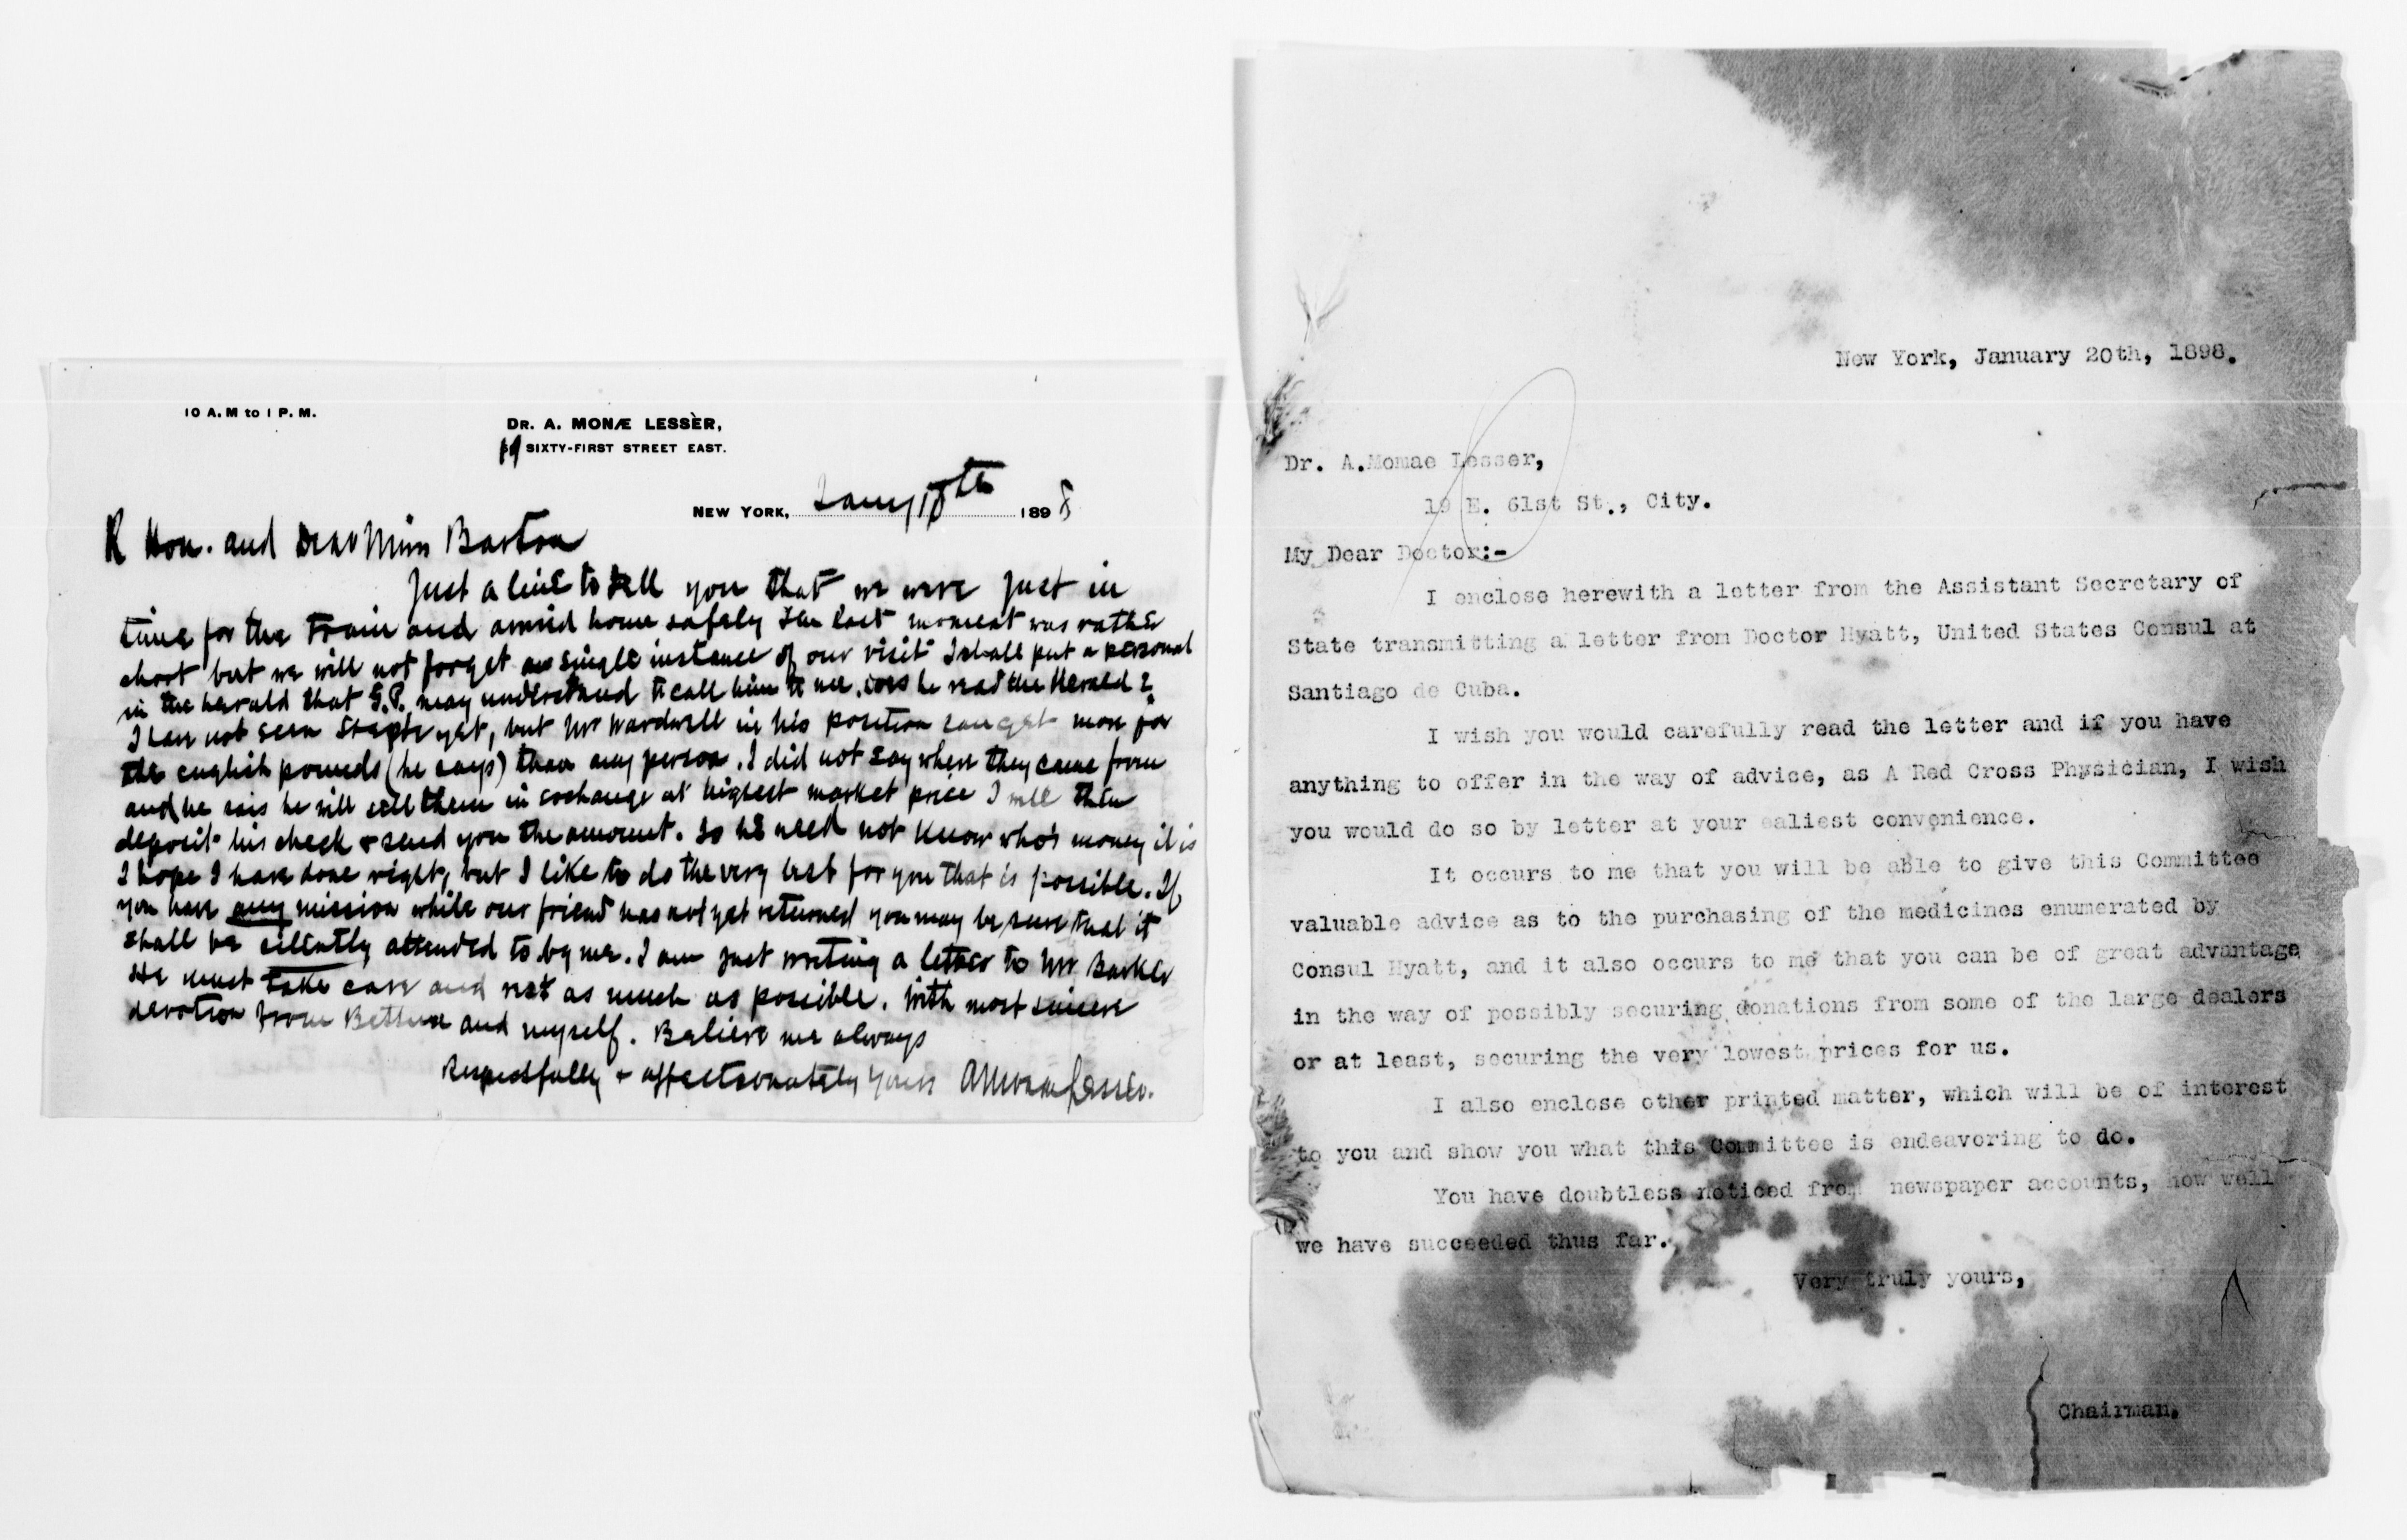 10 A.M to 1 P.M.
DR. A. MONÆ LESSER,
19 SIXTY-FIRST STREET EAST.
NEW YORK, Jany 18th 1898
R Hon. and Dear Miss Barton
Just a line to tell you that we were just in
time for the train and arrived home safely The last moment was rather
short but we will not forget a single instance of our visit I shall put a personal
in the herald that G.P. may understand to call him to me. does he read the Herald?
I have not seen yet, but Mr Wardwell in his position can get more for
the english pounds (he says) than any person. I did not say where they came from
and he sais he will sell them in exchange at highest market price I will then
deposit his check & send you the amount. So he need not know who's money it is
I hope I have done right, but I like to do the very best for you that is possible. If
you have any mission while our friend has not yet returned you may be sure that it
shall be silently attended to by me. I am just writing a letter to Mr Barker
He must take care and rest as much as possible. With most sincere
devotion from Bettina and myself. Believe me always
Respectfully & affectionately yours A Monae Lesser.
New York, January 20th, 1898.
Dr. A.Momae Lesser,
19 E. 61st St., City.
My Dear Doctor:-
I enclose herewith a letter from the Assistant Secretary of
State transmitting a letter from Doctor Hyatt, United States Consul at
Santiago de Cuba.
I wish you would carefully read the letter and if you have
anything to offer in the way of advice, as A Red Cross Physician, I wish
you would do so by letter at your ealiest convenience.
It occurs to me that you will be able to give this Committee
valuable advice as to the purchasing of the medicines enumerated by
Consul Hyatt, and it also occurs to me that you can be of great advantage
in the way of possibly securing donations from some of the large dealers
or at least, securing the very lowest prices for us.
I also enclose other printed matter, which will be of interest
to you and show you what this Committee is endeavoring to do.
You have doubtless noticed from newspaper accounts, how well
we have succeeded thus far.
Very truly yours,
Chairman.